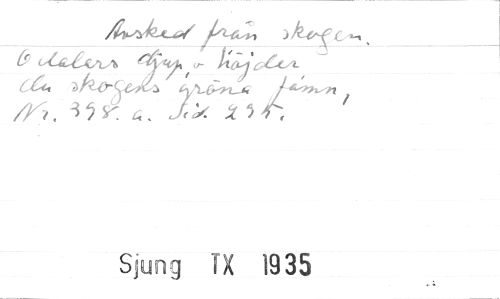 Avsked från skogen.
O dalars djup, o höjder
du skogens gröna famn,
Nr. 398. a. Sid. 295.
Sjung TX 1935